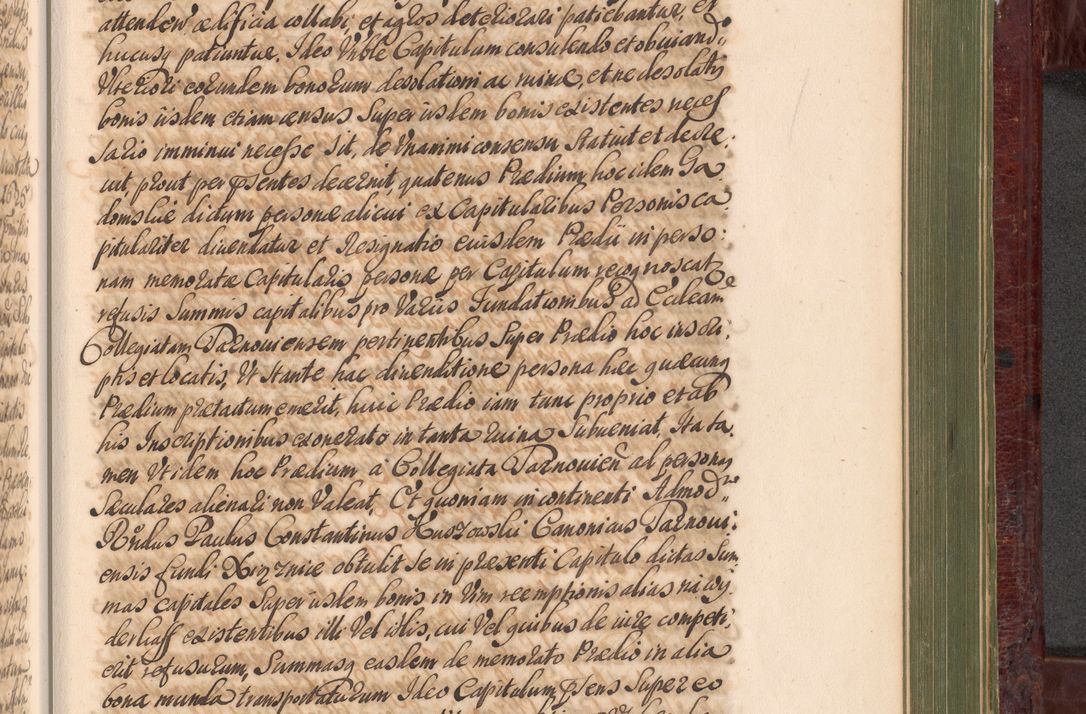 attender ædificia collabi, et agros deteriorari patiebantur, et
hucusq patiuntur. Ideo Vrble Capitulum consulendo et obuiand:
Vlteriori eorundem bonorum desolationi ac ruinæ, et ne desolatis
bonis ijsdem etiam census super ijsdem bonis existentes neces
sario imminui necesse sit, de Vnanimi consensu statuit et decre
uit prout per pſentes decernit, quatenus Prædium hoc idem Ga
domskie dictum personæ alicui ex Capitularibus Personis ca
pitulariter diuendatur et Resignatio eiusdem Prædii in perso:
nam memoratæ Capitularis personæ per Capitulum recognoscatr
refusis summis capitalibus pro Variis Fundationibus ad Eccleam
Collegiatam Tarnouiensem pertinentibus super Prædio hoc inscri
ptis et locatis, Vt stante hac diuenditione persona hæc quæcunq
Prædium prætactum emerit, huic Prædio iam tunc proprio et ab
his Inscriptionibus exonerato in tanta ruina subueniat, Ita ta
men Vt idem hoc Prædium a Collegiata Tarnouien̄ al personas
sæculares alienari non Valeat, Et quoniam in continenti Admod
Rn̄dus Paulus Constantinus Huszowskii Canonicus Tarnoui:
ensis fundi obtulit se in præsenti Capitulo dictas Sum
mas capitales super ijsdem bonis in Vim reemptionis alias na wy
derkaff existentibus illi Vel istis, cui Vel quibus de iure competi
erit refusurum, Summasq easdem de memorato Prædio in alia
bona munda transportaturum Ideo Capitulum pſens super eo